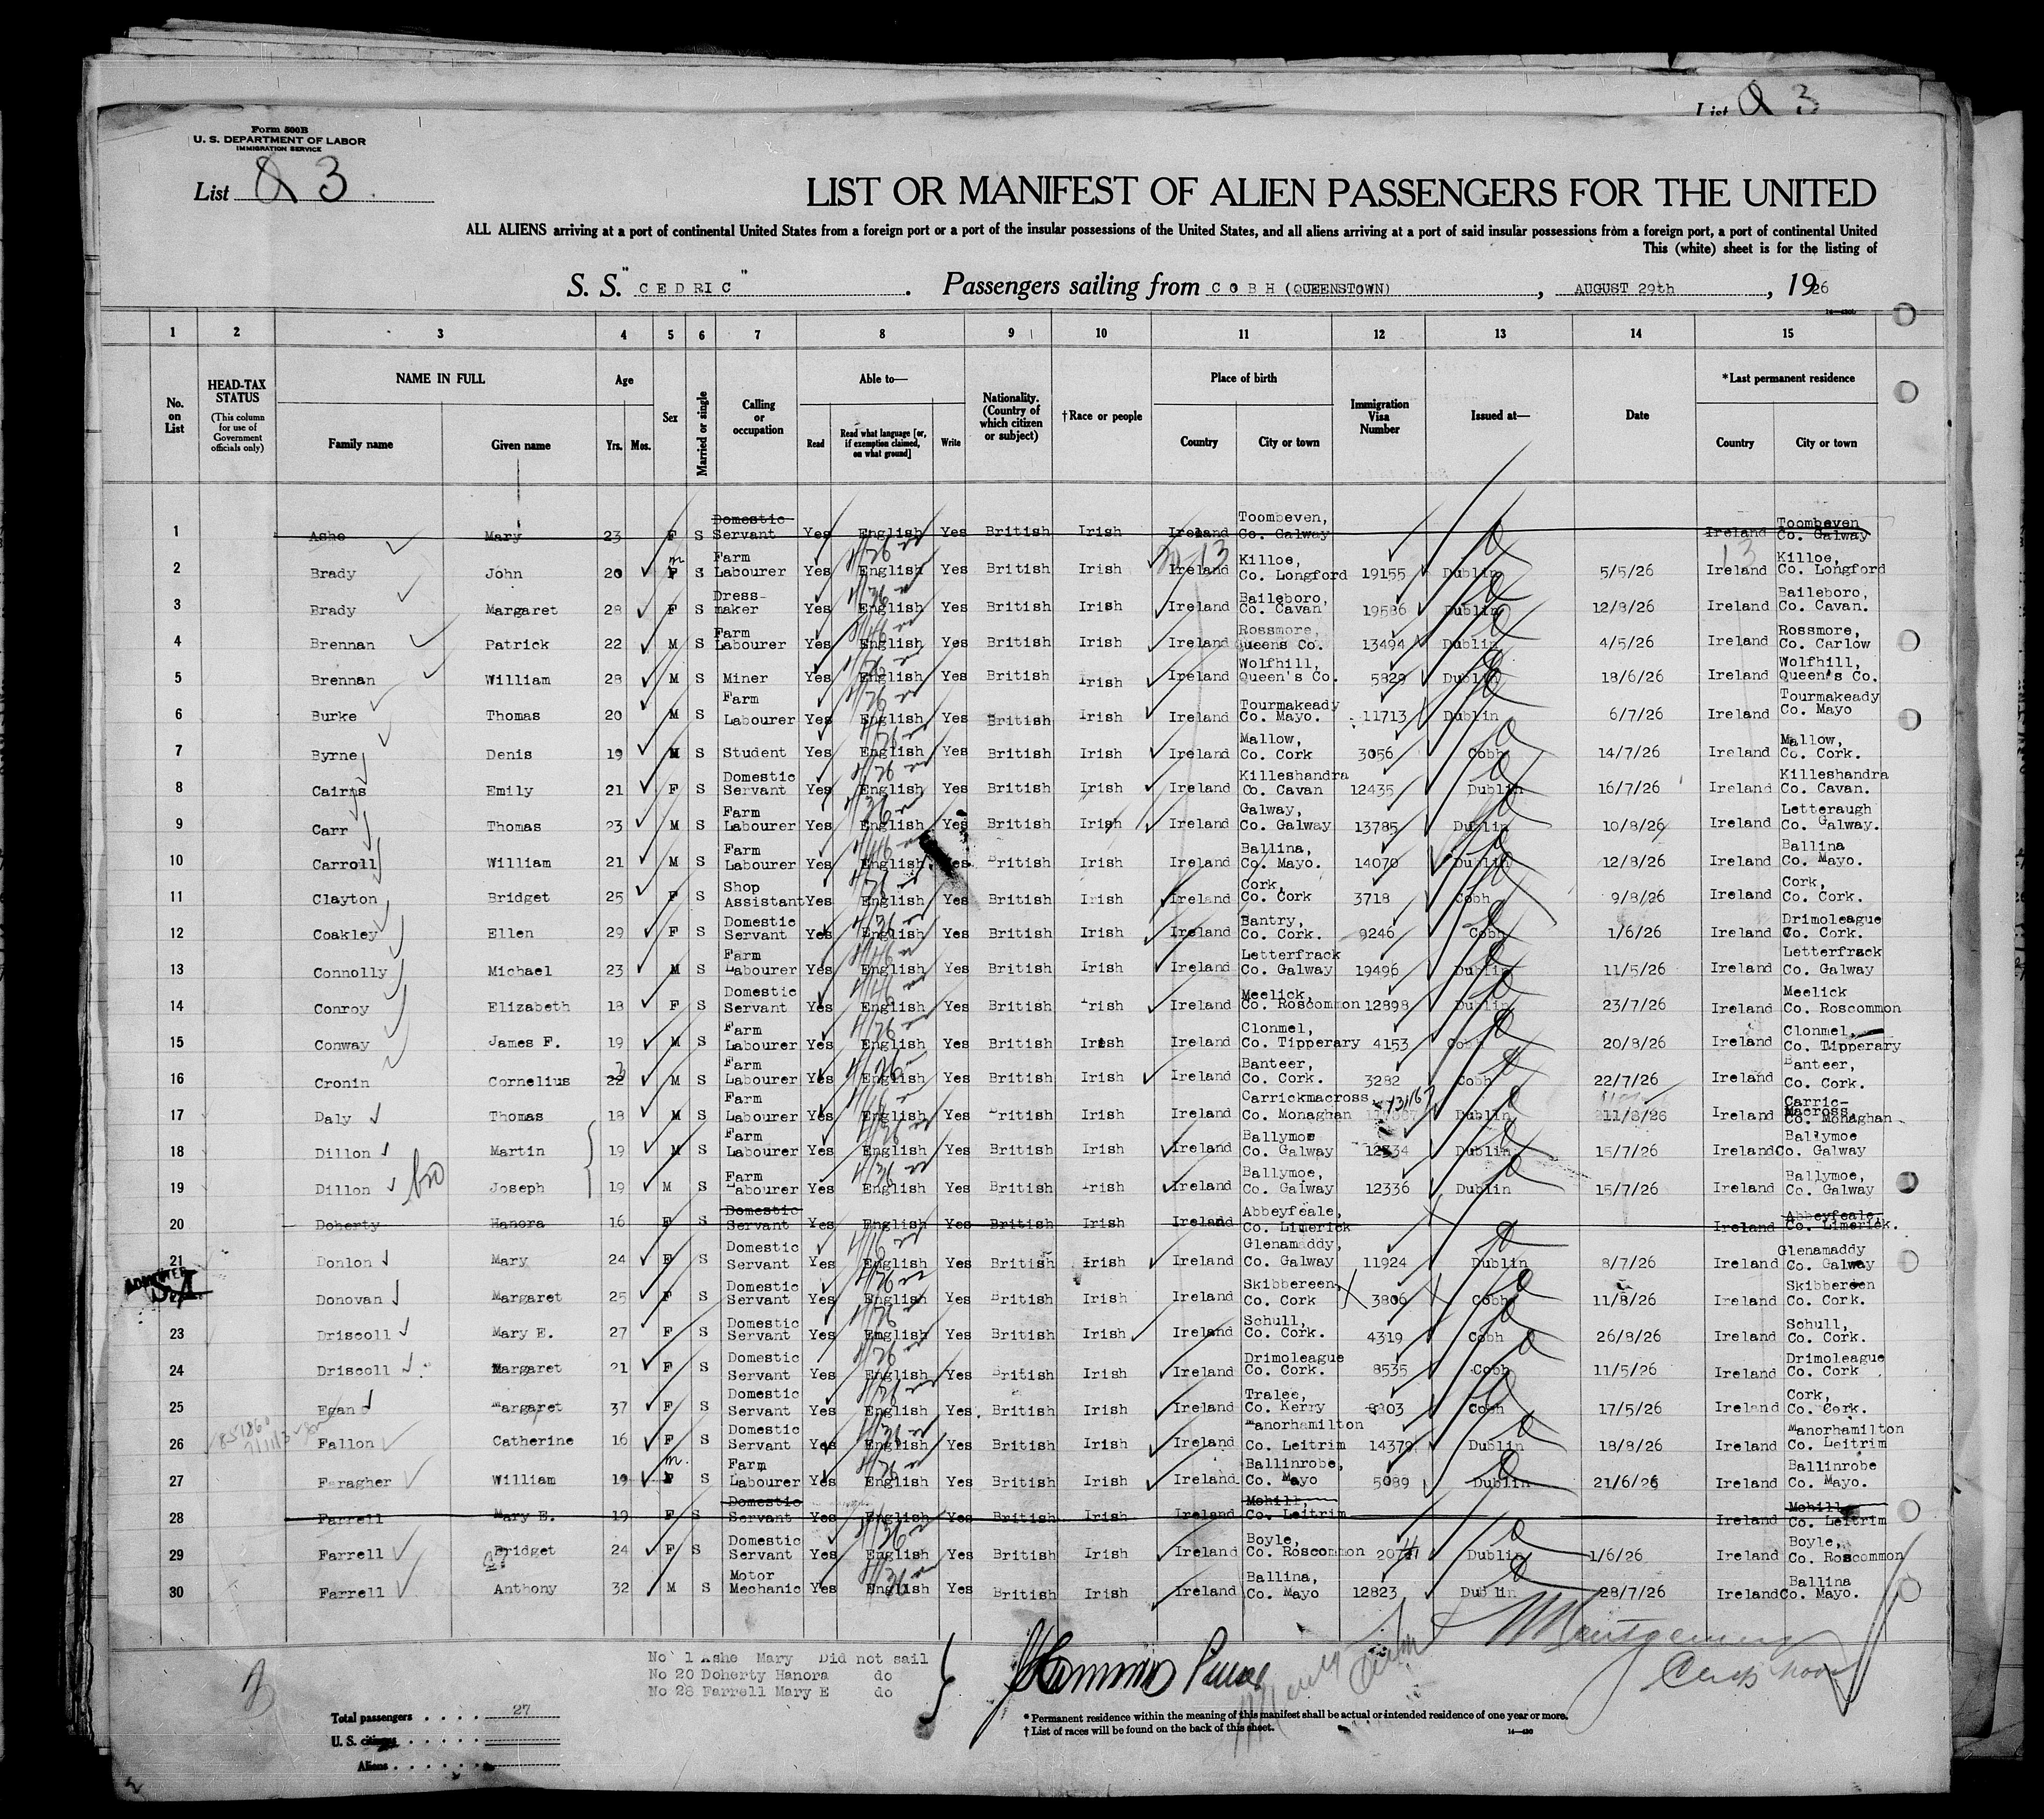 List & 3
Form 500B
U. S. DEPARTMENT OF LABOR
IMMIGRATION SERVICE
List & 3.
LIST OR MANIFEST OF ALIEN PASSENGERS FOR THE UNITED
ALL ALIENS arriving at a port of continental United States from a foreign port or a port of the insular possessions of the United States, and all aliens arriving at a port of said insular possessions from a foreign port, a port of continental United
This (white) sheet is for the listing of
S. S. "CEDRIC". Passengers sailing from COBH (QUEENSTOWN), AUGUST 29th, 1926
1 2 3 4 5 6 7 8 9 10 11 12 13 14 15
No. on List HEAD-TAX STATUS (This column for use of Government officials only) NAME IN FULL Family name Given name Age Yrs. Mos. Sex Married or single Calling or occupation Able to— Read Read what language [or, if exemption claimed, on what ground] Write Nationality. (Country of which citizen or subject) †Race or people Place of birth Country City or town Immigration Visa Number Issued at— Date *Last permanent residence Country City or town
1 Ashe Mary 23 F S Domestic Servant Yes English Yes British Irish Ireland Toombeven, Co. Galway Ireland Toombeven Co. Galway
2 Brady John 20 m F S Farm Labourer Yes English Yes British Irish Ireland Killoe, Co. Longford 19155 Dublin 5/5/26 Ireland Killoe, Co. Longford
3 Brady Margaret 28 F S Dress-maker Yes English Yes British Irish Ireland Baileboro, Co. Cavan 19586 Dublin 12/8/26 Ireland Baileboro, Co. Cavan.
4 Brennan Patrick 22 M S Farm Labourer Yes English Yes British Irish Ireland Rossmore, Queens Co. 13494 Dublin 4/5/26 Ireland Rossmore, Co. Carlow
5 Brennan William 28 M S Miner Yes English Yes British Irish Ireland Wolfhill, Queen's Co. 5829 Dublin 18/6/26 Ireland Wolfhill, Queen's Co.
6 Burke Thomas 20 M S Farm Labourer Yes English Yes British Irish Ireland Tourmakeady Co. Mayo. 11713 Dublin 6/7/26 Ireland Tourmakeady Co. Mayo
7 Byrne Denis 19 M S Student Yes English Yes British Irish Ireland Mallow, Co. Cork 3056 Cobh 14/7/26 Ireland Mallow, Co. Cork.
8 Cairns Emily 21 F S Domestic Servant Yes English Yes British Irish Ireland Killeshandra Co. Cavan 12435 Dublin 16/7/26 Ireland Killeshandra Co. Cavan.
9 Carr Thomas 23 M S Farm Labourer Yes English Yes British Irish Ireland Galway, Co. Galway 13785 Dublin 10/8/26 Ireland Letteraugh Co. Galway.
10 Carroll William 21 M S Farm Labourer Yes English Yes British Irish Ireland Ballina, Co. Mayo. 14070 Dublin 12/8/26 Ireland Ballina Co. Mayo.
11 Clayton Bridget 25 F S Shop Assistant Yes English Yes British Irish Ireland Cork, Co. Cork 3718 Cobh 9/8/26 Ireland Cork, Co. Cork.
12 Coakley Ellen 29 F S Domestic Servant Yes English Yes British Irish Ireland Bantry, Co. Cork. 9246 Cobh 1/6/26 Ireland Drimoleague Co. Cork.
13 Connolly Michael 23 M S Farm Labourer Yes English Yes British Irish Ireland Letterfrack Co. Galway 19496 Dublin 11/5/26 Ireland Letterfrack Co. Galway
14 Conroy Elizabeth 18 F S Domestic Servant Yes English Yes British Irish Ireland Meelick, Co. Roscommon 12898 Dublin 23/7/26 Ireland Meelick Co. Roscommon
15 Conway James F. 19 M S Farm Labourer Yes English Yes British Irish Ireland Clonmel, Co. Tipperary 4153 Cobh 20/8/26 Ireland Clonmel, Co. Tipperary
16 Cronin Cornelius 22 M S Farm Labourer Yes English Yes British Irish Ireland Banteer, Co. Cork. 3282 Cobh 22/7/26 Ireland Banteer, Co. Cork.
17 Daly Thomas 18 M S Farm Labourer Yes English Yes British Irish Ireland Carrickmacross Co. Monaghan Dublin 11/8/26 Ireland Carric-Macross, Co. Monaghan
18 Dillon Martin 19 M S Farm Labourer Yes English Yes British Irish Ireland Ballymoe Co. Galway 12334 Dublin 15/7/26 Ireland Ballymoe Co. Galway
19 Dillon bro Joseph 19 M S Farm Labourer Yes English Yes British Irish Ireland Ballymoe, Co. Galway 12336 Dublin 15/7/26 Ireland Ballymoe, Co. Galway
20 Doherty Hanora 16 F S Domestic Servant Yes English Yes British Irish Ireland Abbeyfeale, Co. Limerick Ireland Abbeyfeale, Co. Limerick.
21 Donlon Mary 24 F S Domestic Servant Yes English Yes British Irish Ireland Glenamaddy, Co. Galway 11924 Dublin 8/7/26 Ireland Glenamaddy Co. Galway
ADMITTED Donovan Margaret 25 F S Domestic Servant Yes English Yes British Irish Ireland Skibbereen, Co. Cork 3806 Cobh 11/8/26 Ireland Skibbereen Co. Cork.
23 Driscoll Mary E. 27 F S Domestic Servant Yes English Yes British Irish Ireland Schull, Co. Cork. 4319 Cobh 26/8/26 Ireland Schull, Co. Cork.
24 Driscoll Margaret 21 F S Domestic Servant Yes English Yes British Irish Ireland Drimoleague Co. Cork. 8535 Cobh 11/5/26 Ireland Drimoleague Co. Cork
25 Egan Margaret 37 F S Domestic Servant Yes English Yes. British Irish Ireland Tralee, Co. Kerry 8303 Cobh 17/5/26 Ireland Cork, Co. Cork.
26 Fallon Catherine 16 F S Domestic Servant Yes English Yes British Irish Ireland Manorhamilton Co. Leitrim 14379 Dublin 18/8/26 Ireland Manorhamilton Co. Leitrim
27 Faragher William 19 m. F S Farm Labourer Yes English Yes British Irish Ireland Ballinrobe, Co. Mayo 5089 Dublin 21/6/26 Ireland Ballinrobe Co. Mayo.
28 Farrell Mary E. 19 F S Domestic Servant Yes English Yes British Irish Ireland Mohill, Co. Leitrim Ireland Mohill Co. Leitrim
29 Farrell Bridget 24 F S Domestic Servant Yes English Yes British Irish Ireland Boyle, Co. Roscommon Dublin 1/6/26 Ireland Boyle, Co. Roscommon
30 Farrell Anthony 32 M S Motor Mechanic Yes English Yes British Irish Ireland Ballina, Co. Mayo 12823 Dublin 28/7/26 Ireland Ballina Co. Mayo.
No 1 Ashe Mary Did not sail
No 20 Doherty Hanora do
No 28 Farrell Mary E do
Total passengers . . . . 27
U. S. citizens
Aliens
* Permanent residence within the meaning of this manifest shall be actual or intended residence of one year or more.
† List of races will be found on the back of this sheet.